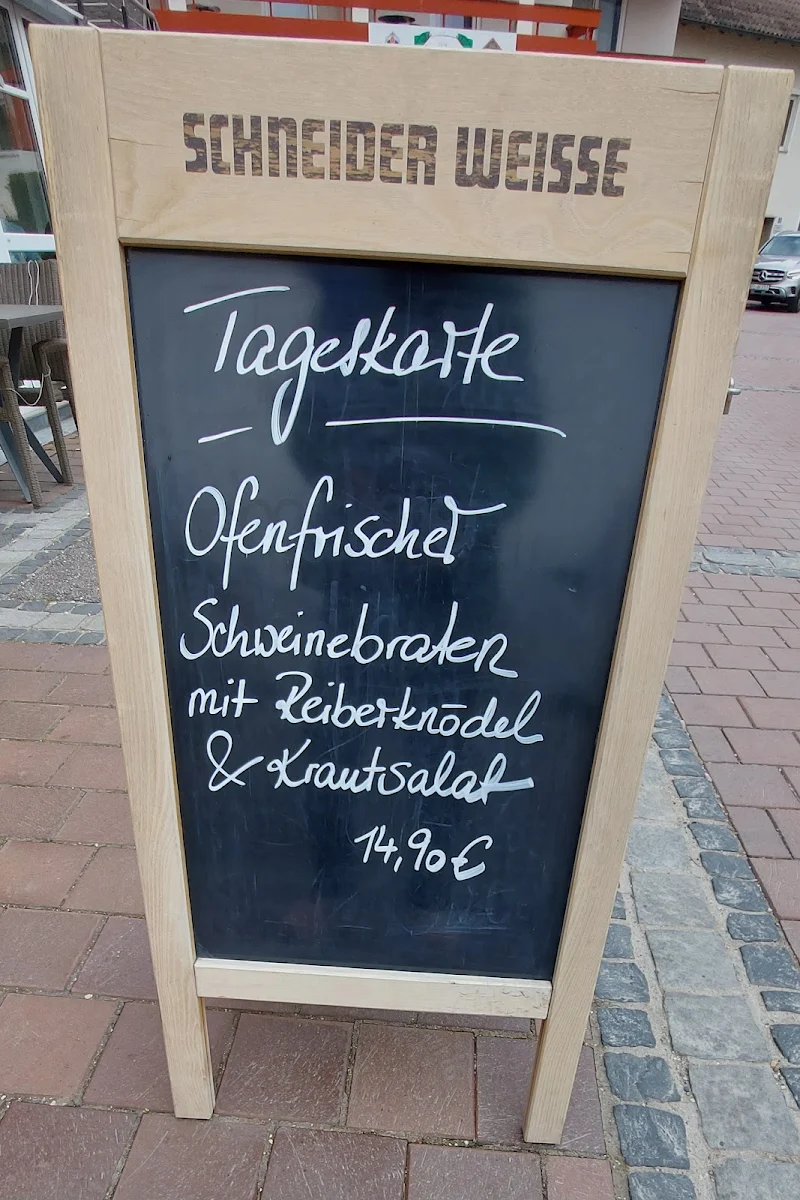 SCHNEIDER WEISSE
Tageskarte
Ofenfrischer
Schweinebraten
mit Reiberknödel
& Krautsalat
14,90€